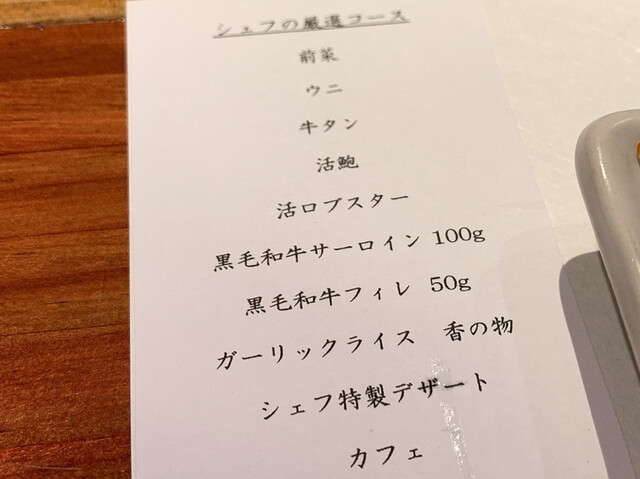 シェフの厳選コース
前菜
ウニ
牛タン
活鮑
活ロブスター
黒毛和牛サーロイン 100g
黒毛和牛フィレ 50g
ガーリックライス 香の物
シェフ特製デザート
カフェ